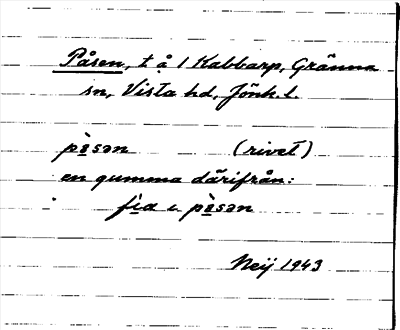 Påsen, t å 1 Kabbarp, Gränna
sn, Vista hd, Jönk. l.
pò̱sən (rivet)
en gumma därifrån:
fi̱a i pò̱sən
Neij 1943